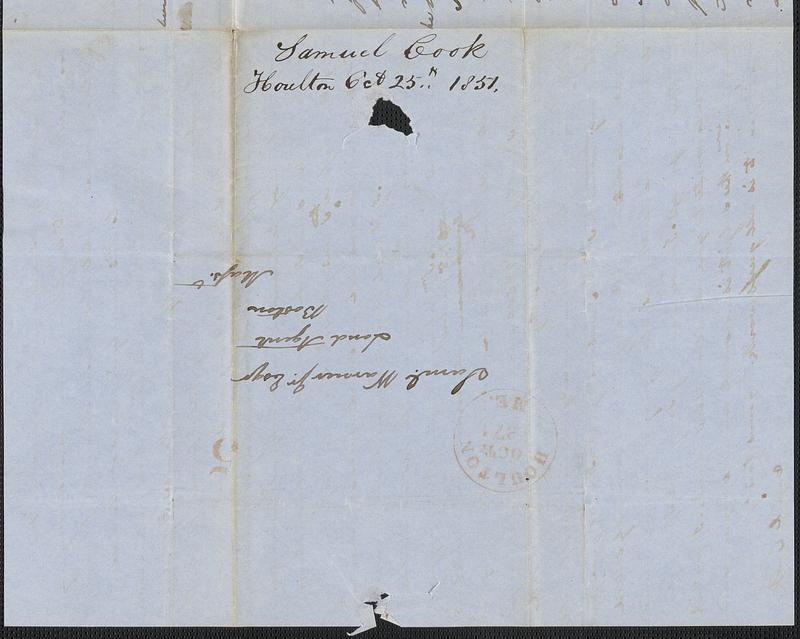 Samuel Cook
Houlton Oct 25th 1851.
Saml. Warner Jr. Esqr
Land Agent
Boston
Mass.
HOULTON
OCT
27
ME.
5